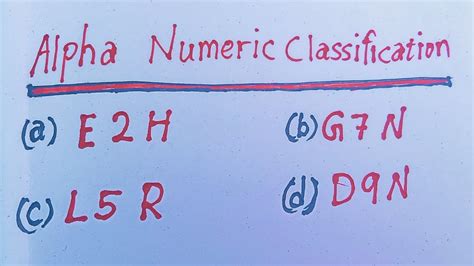 Alpha Numeric Classification
(a) E 2 H (b) G 7 N
(c) L 5 R (d) D 9 N